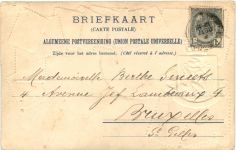 BRIEFKAART
(CARTE POSTALE)
ALGEMEENE POSTVEREENIGING (UNION POSTALE UNIVERSELLE)
Zijde voor het adres bestemd. (Côté réservé à l'adresse.)
Mademoiselle Berthe
4 Avenue Jef Lambeaux 4
Bruxelles
St Gilles